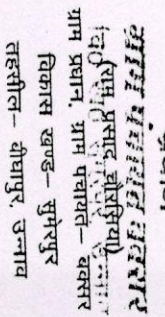 ग्राम पंचायत बक्सर
(राम प्रसाद चौरसिया)
ग्राम प्रधान, ग्राम पंचायत– बक्सर
विकास खण्ड– सुमेरपुर
तहसील– बीघापुर, उन्नाव